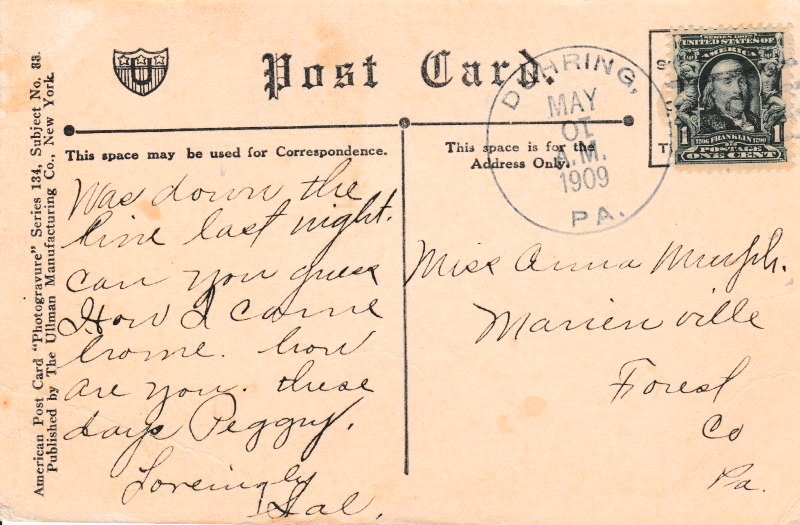 American Post Card "Photogravure" Series 134, Subject No. 33.
Published by The Ullman Manufacturing Co., New York.
U
Post Card.
This space may be used for Correspondence.
This space is for the
Address Only.
DUHRING,
MAY
01
A.M.
1909
PA.
SERIES 1902
UNITED STATES OF
AMERICA
1 FRANKLIN 1
1706 1790
POSTAGE
ONE CENT
Was down the
line last night.
can you guess
How I came
home. how
are you. these
days Peggy.
Lovingly
Hal.
Miss Anna Murph.
Marienville
Forest
Co
Pa.